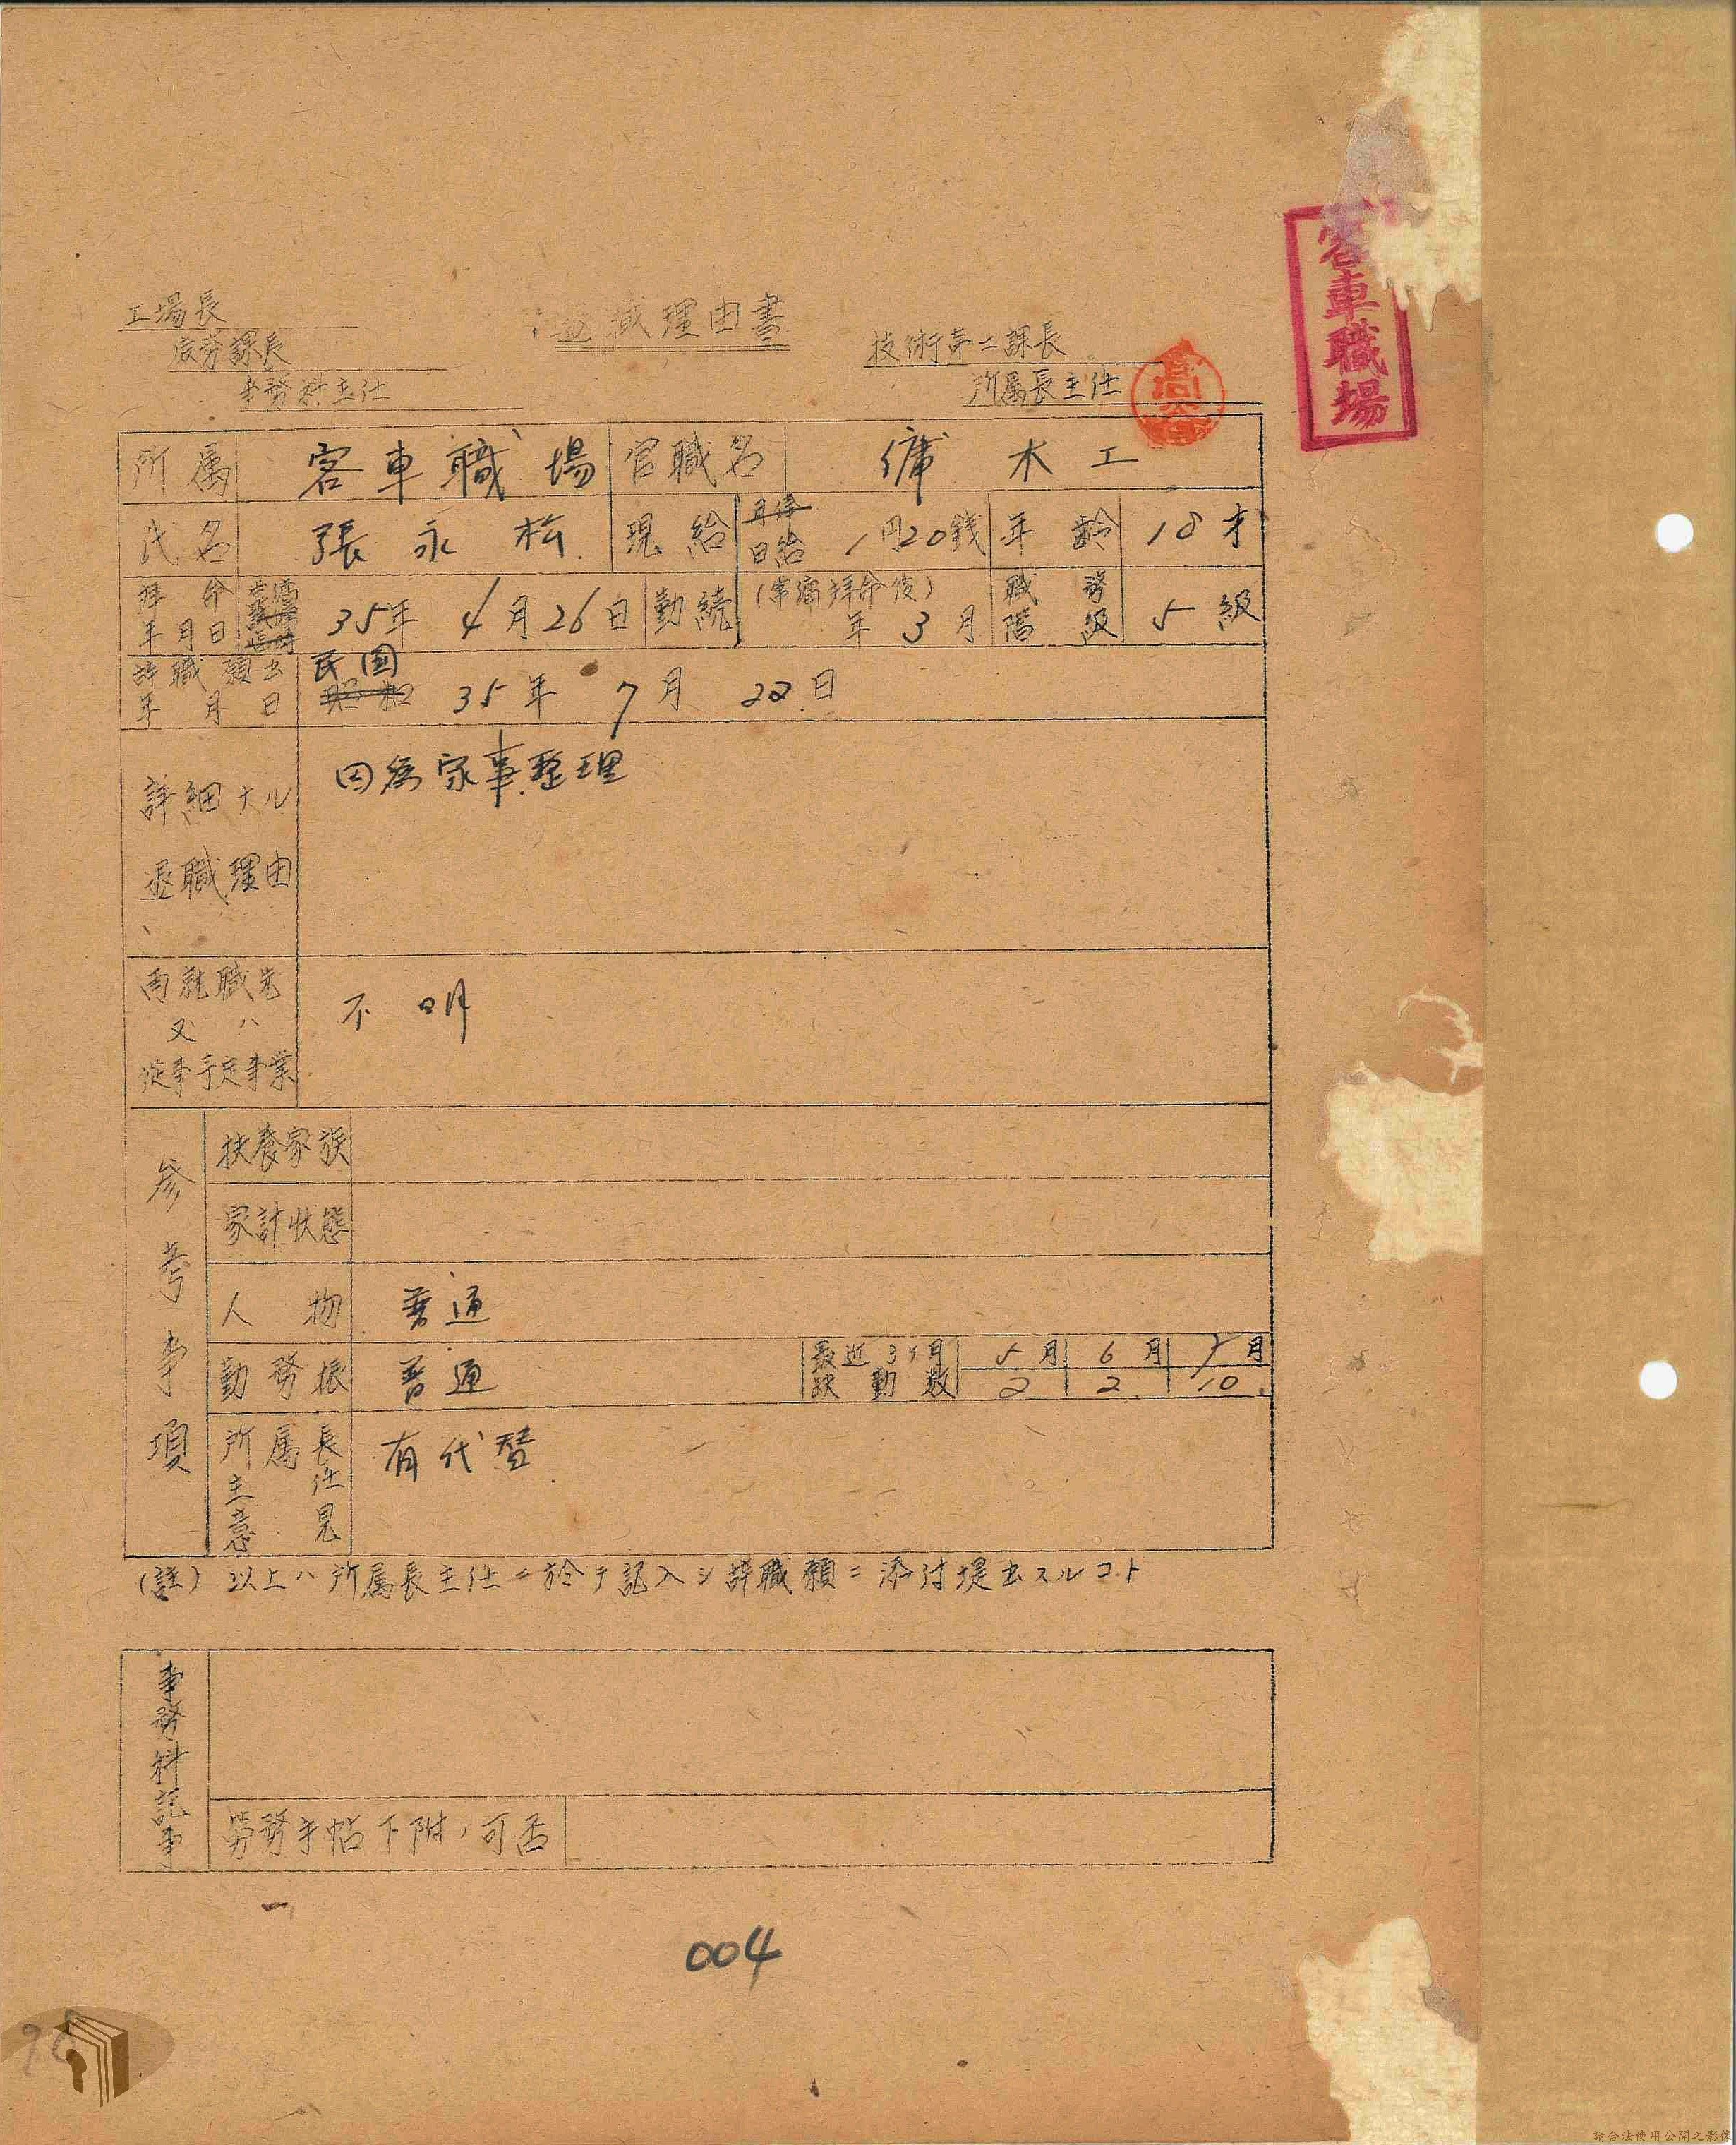 客車職場
工場長
退職理由書
庶務課長
技術第二課長
事務科主任
所属長主任
所属 客車職場 官職名 傭 木工
氏名 張永松 現給 月俸 日給 1円20銭 年齢 18才
拝命年月日 35年4月26日 勤続 (常傭拝命後) 年3月 職務階級 5級
辞職願出年月日 民国 昭和 35年7月22日
詳細ナル退職理由 因為家事整理
再就職先又ハ従事予定事業 不明
参考事項
扶養家族
家計状態
人物 普通
勤務振 普通 最近3ヶ月欠勤数 5月 2 6月 2 7月 10
所属長主任意見 有代替
(註) 以上ハ所属長主任ニ於テ記入シ辞職願ニ添付提出スルコト
事務科記事
労務手帖下附ノ可否
004
請合法使用公開之影像